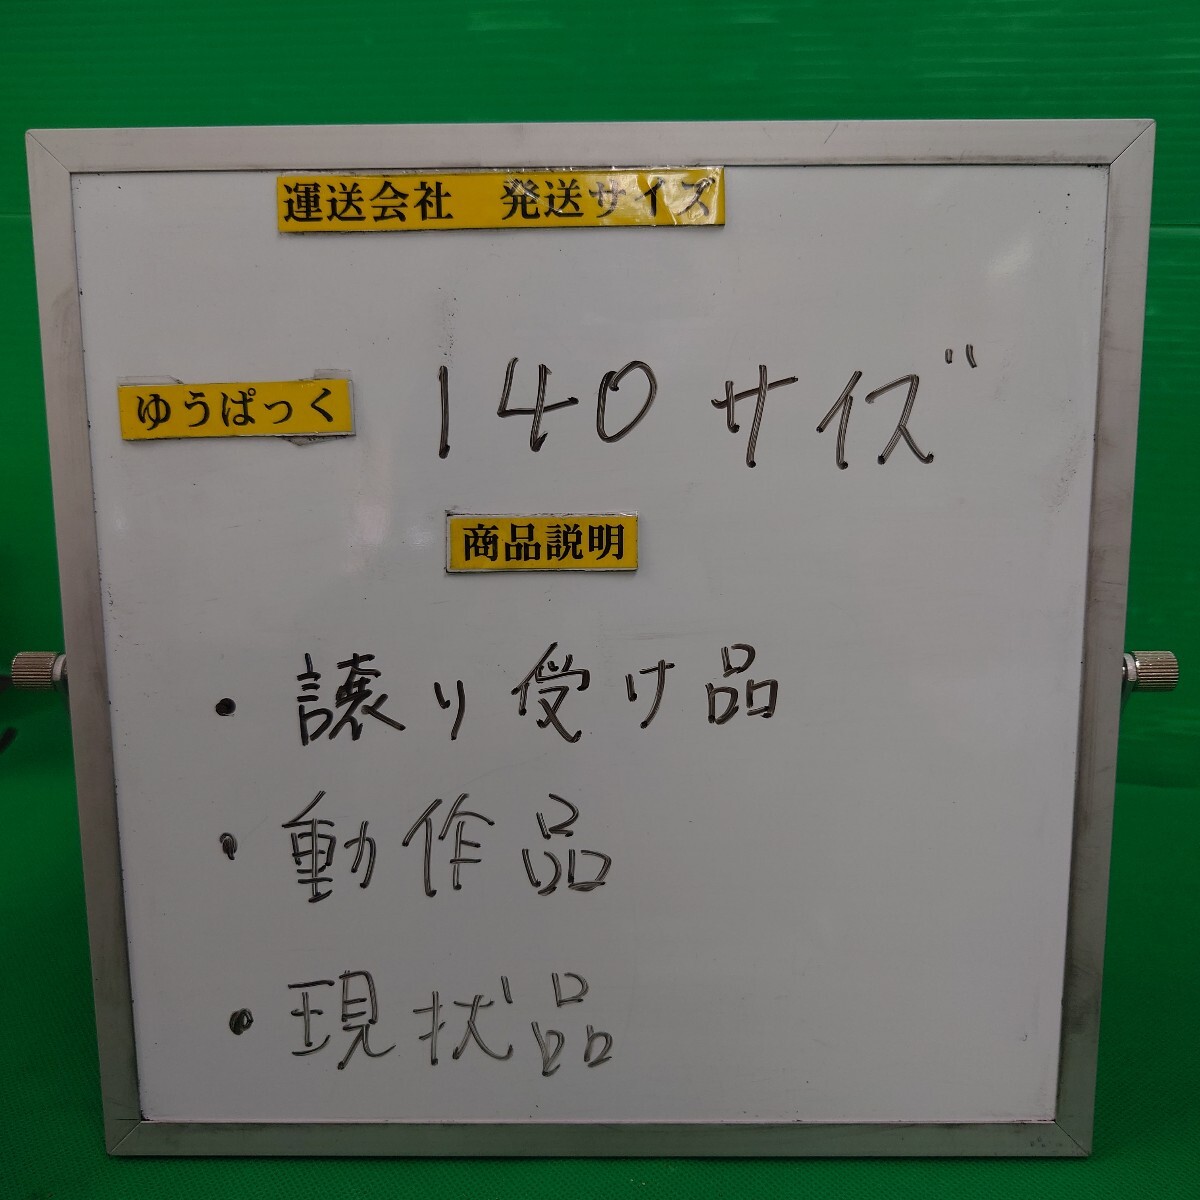 運送会社　発送サイズ
ゆうぱっく 140サイズ
商品説明
・譲り受け品
・動作品
・現状品